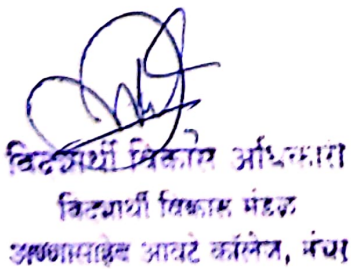 विद्यार्थी विकास अधिकारी
विद्यार्थी विकास मंडळ
अण्णासाहेब आवटे कॉलेज, मंचर